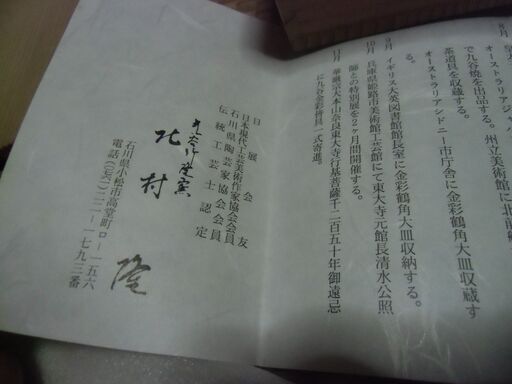 8月
オーストラリアジャ
で九谷焼を出品する。州立美術館に北前船
茶道具を収蔵する。
オーストラリアシドニー市庁舎に金彩鶴角大皿収蔵す
る。
9月 イギリス大英図書館館長室に金彩鶴角大皿収納する。
10月 兵庫県姫路市美術館工芸館にて東大寺元館長清水公照
師との特別展を2ヶ月間開催する。
11月 華厳宗大本山奈良東大寺行基菩薩千二百五十年御遠忌
に九谷会彩待具一式寄進。
日展会友
日本現代工芸美術作家協会会員
石川県陶芸家協会会員
伝統工芸士認定
北村 隆
石川県小松市高堂町ロ－一五六
電話(〇七六一)二二－一七九三番